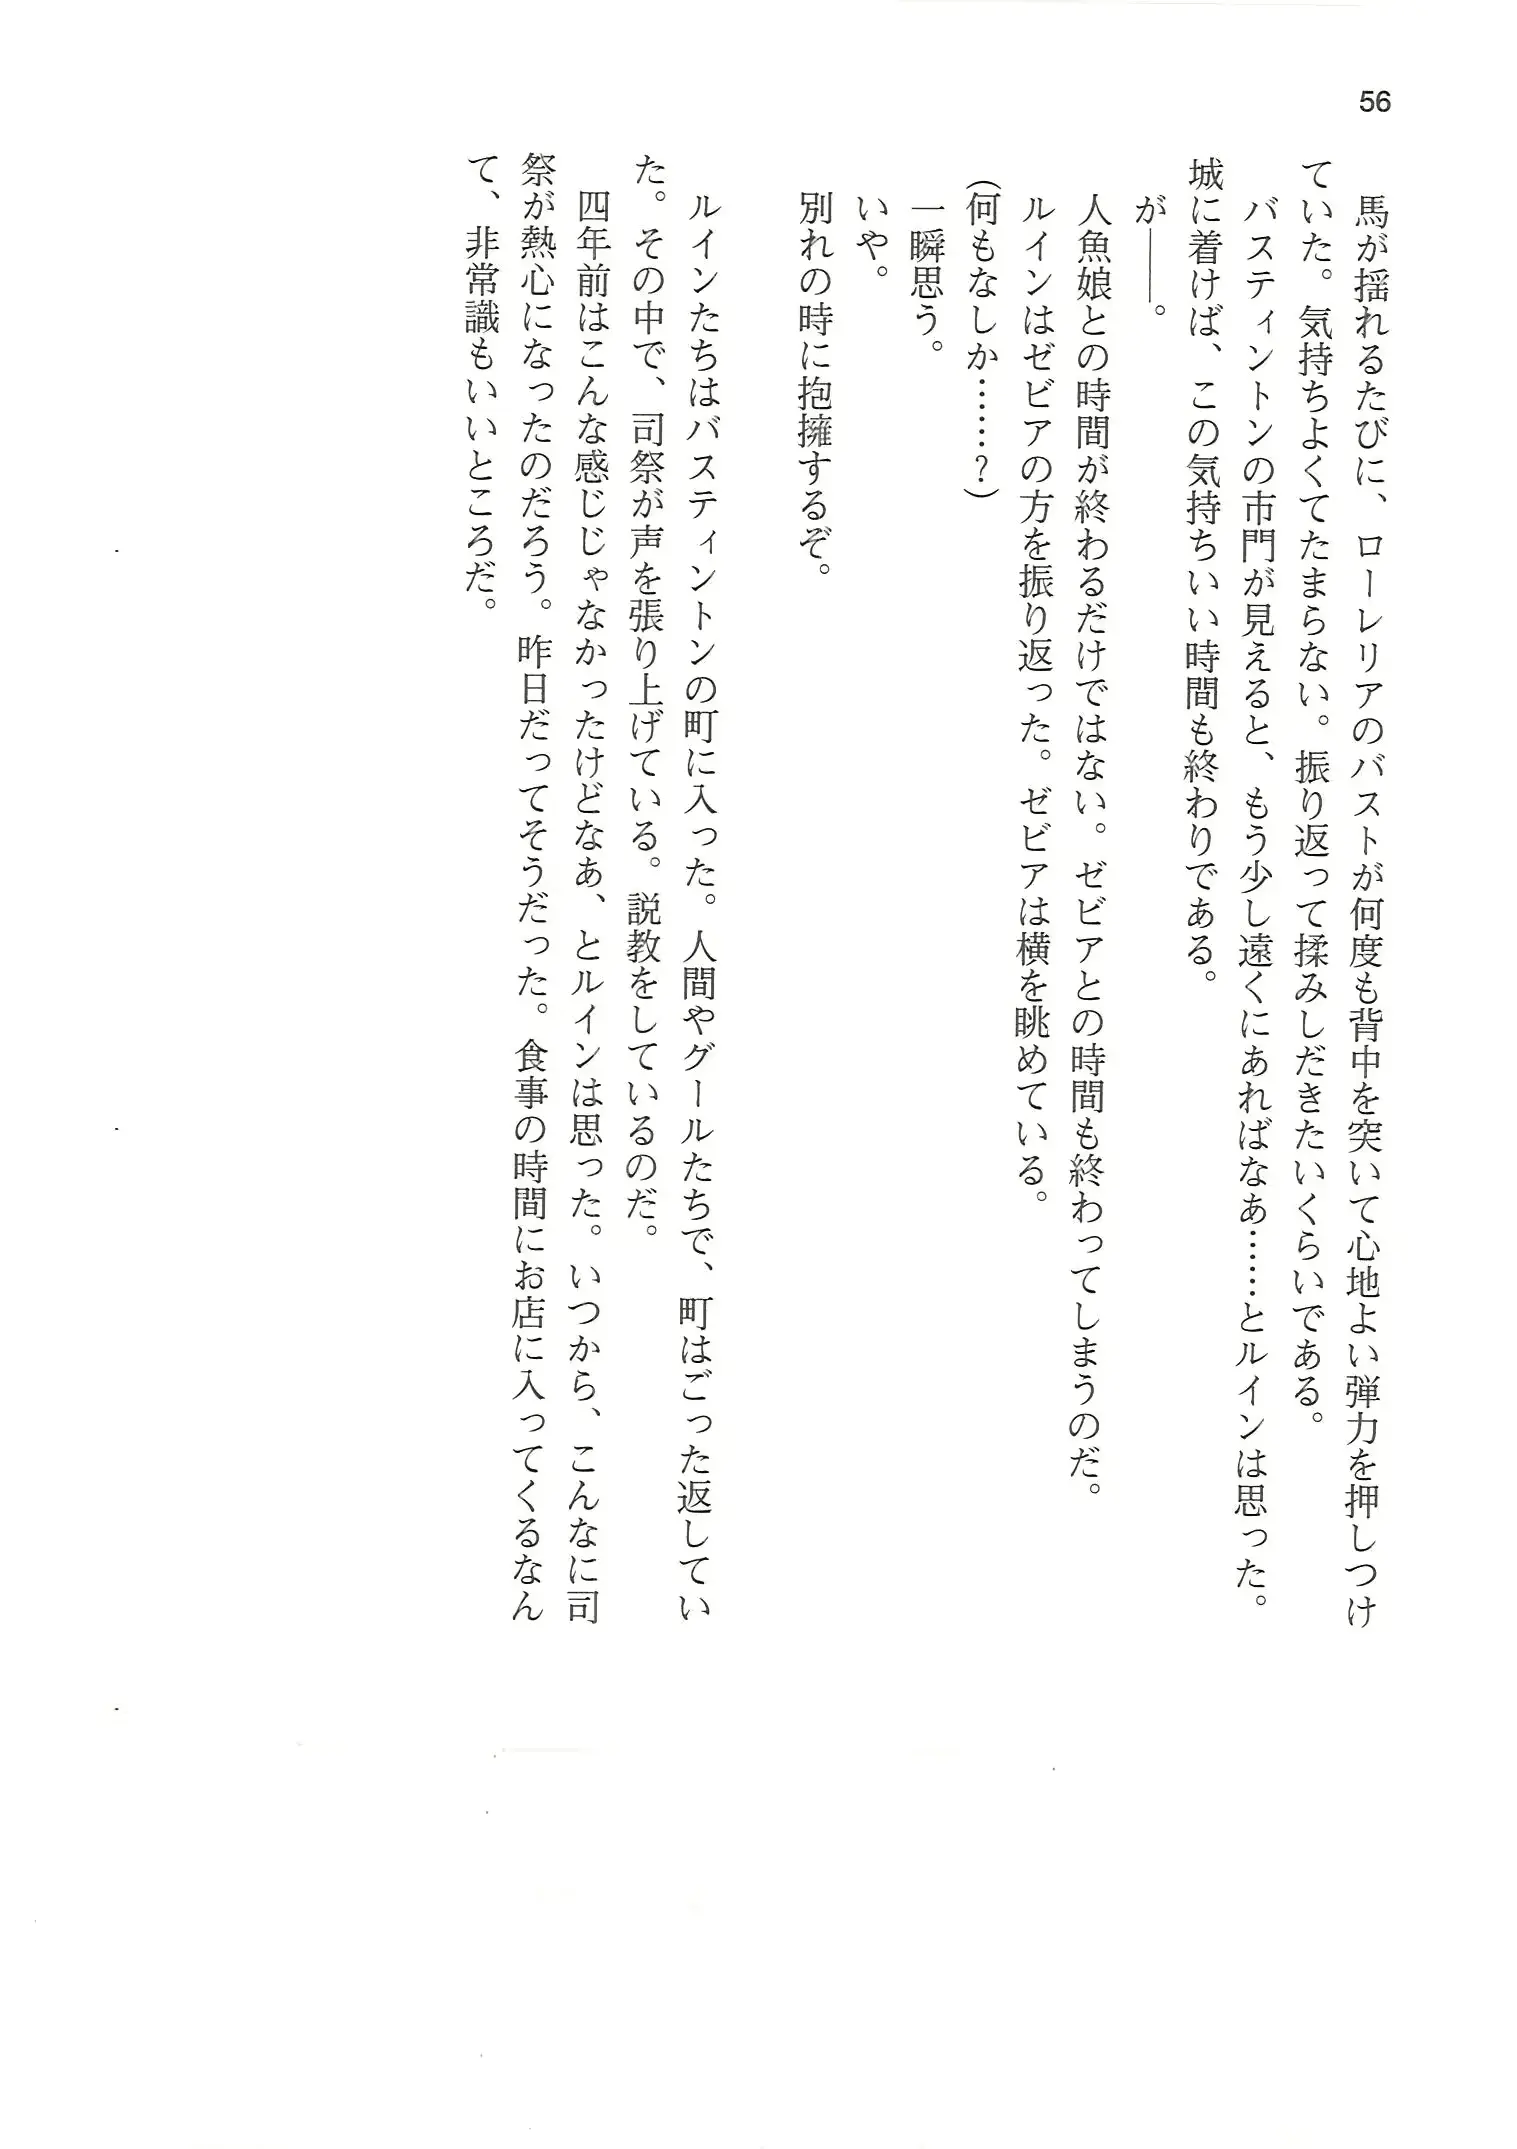 56
　馬が揺れるたびに、ローレリアのバストが何度も背中を突いて心地よい弾力を押しつけ
ていた。気持ちよくてたまらない。振り返って揉みしだきたいくらいである。
　バスティントンの市門が見えると、もう少し遠くにあればなあ……とルインは思った。
城に着けば、この気持ちいい時間も終わりである。
　が――。
　人魚娘との時間が終わるだけではない。ゼビアとの時間も終わってしまうのだ。
　ルインはゼビアの方を振り返った。ゼビアは横を眺めている。
（何もなしか……？）
　一瞬思う。
　いや。
　別れの時に抱擁するぞ。
　ルインたちはバスティントンの町に入った。人間やグールたちで、町はごった返してい
た。その中で、司祭が声を張り上げている。説教をしているのだ。
　四年前はこんな感じじゃなかったけどなあ、とルインは思った。いつから、こんなに司
祭が熱心になったのだろう。昨日だってそうだった。食事の時間にお店に入ってくるなん
て、非常識もいいところだ。